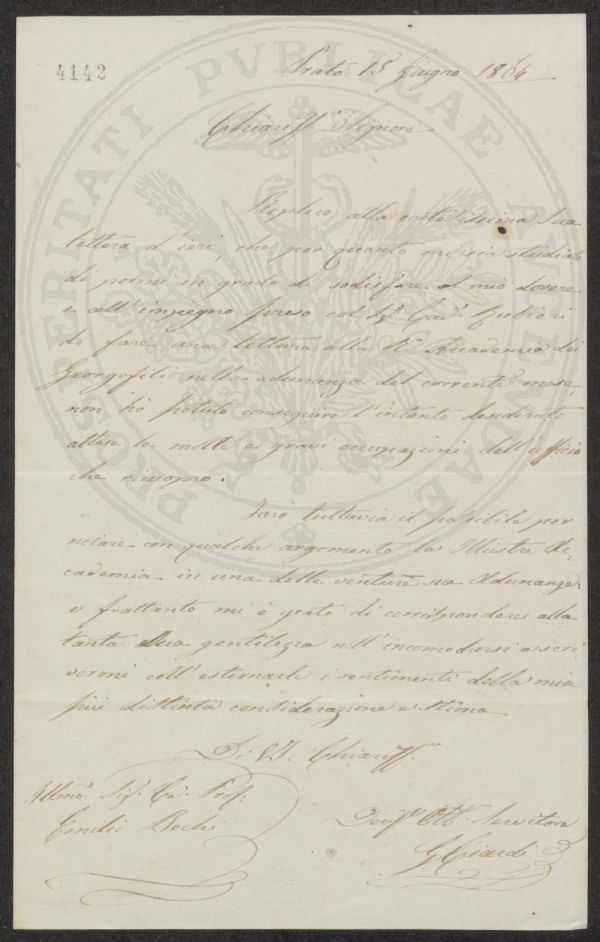 4142
Prato 15 Giugno 1864
Chiariss. Signore
Replico alla cortesissima Sua
lettera d'ieri, che per quanto mi sia studiato
di pormi in grado di sodisfare al mio dovere
e all'impegno preso col Sig. Cav.
di fare una lettura alla R. Accademia dei
Georgofili nell'adunanza del corrente mese,
non hò potuto conseguire l'intento desiderato
attese le molte e gravi occupazioni dell'uffizio
che ricuopro.
Farò tuttavia il possibile per
con qualche argomento la Illustre Ac:
cademia in una delle venture sue Adunanze:
e frattanto mi è grato di corrispondere alla
tanta Sua gentilezza nell'incomodarsi a scri
vermi coll'esternarle i sentimenti della mia
più distinta considerazione e stima
Di V.S. Chiariss.
Illmo: Sig. Prof:
Emilio Bechi
Devs. Obb. Servitore
G Ciardi
PROSPERITATI PVBLICAE AVGENDAE